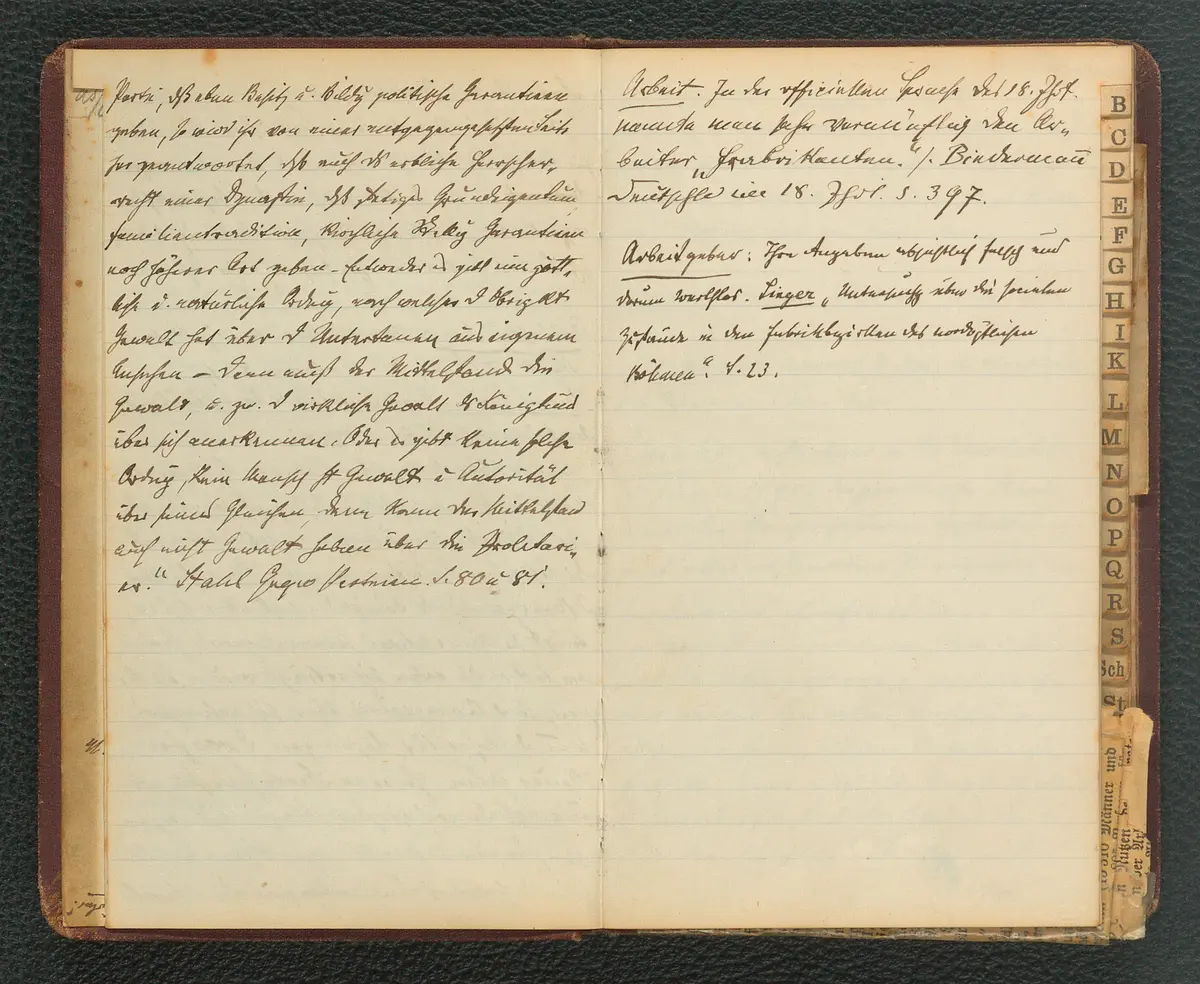 Partei, dß eben Besitz u. Bildg politische Garantieen
geben, so wird ihr von einer entgegengesetzten Seite
her geantwortet, dß auch ds erbliche Herrscher-
recht einer Dynastie, dß stetiges Grundeigentum,
Familientradition, kirchliche Garantieen
noch höherer Art geben – Entweder es gibt eine gött-
liche u. natürliche Ordng, nach welcher d Obrigkt
Gewalt hat über d Untertanen aus eigenem
Ansehen – dann muß der Mittelstand die
Gewalt, u. zw. d wirkliche Gewalt ds Königtums
über sich anerkennen. Oder es gibt keine solche
Ordng, kein Mensch ht Gewalt u Autorität
über seines Gleichen, dann kann der Mittelstand
auch nicht Gewalt haben über die Proletari-
er." Stahl Gegw Parteien. S. 80 u 81.
Arbeit. In der officiellen Sprache des 18. Jhdt.
nannte man sehr vernünftig den Ar-
beiter „Fabrikanten." s. Biedermann
Deutschld im 18. Jhdt. S. 397.
Arbeitgeber: Ihre Angaben absichtlich falsch und
darum werthlos. Singer „Untersuchg über die socialen
Zustände in den Fabrikbezirken des nordöstlichen
Böhmen". S. 23.
B
C
D
E
F
G
H
I
K
L
M
N
O
P
Q
R
S
Sch
St
Männer und